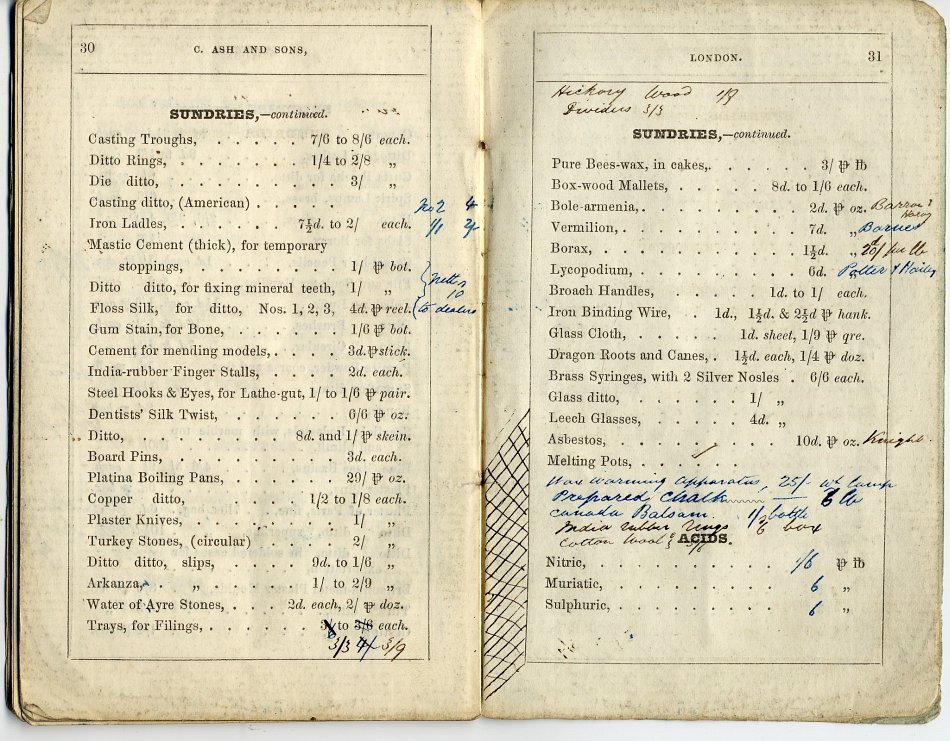 30
C. ASH AND SONS,
SUNDRIES,—continued.
Casting Troughs, . . . . . . 7/6 to 8/6 each.
Ditto Rings, . . . . . . . . 1/4 to 2/8 „
Die ditto, . . . . . . . . . 3/ „
Casting ditto, (American) . . . . . No 2 4
Iron Ladles, . . . . . . 7½d. to 2/ each. 1/1 2/
Mastic Cement (thick), for temporary
stoppings, . . . . . . . 1/ ⅌ bot.
Ditto ditto, for fixing mineral teeth, 1/ „ 10
Floss Silk, for ditto, Nos. 1, 2, 3, 4d. ⅌ reel. to dealers
Gum Stain, for Bone, . . . . . . 1/6 ⅌ bot.
Cement for mending models, . . . . 3d. ⅌ stick.
India-rubber Finger Stalls, . . . . 2d. each.
Steel Hooks & Eyes, for Lathe-gut, 1/ to 1/6 ⅌ pair.
Dentists' Silk Twist, . . . . . 6/6 ⅌ oz.
Ditto, . . . . . . . 8d. and 1/ ⅌ skein.
Board Pins, . . . . . . . . 3d. each.
Platina Boiling Pans, . . . . . . 29/ ⅌ oz.
Copper ditto, . . . . . 1/2 to 1/8 each.
Plaster Knives, . . . . . . . 1/ „
Turkey Stones, (circular) . . . . . 2/ „
Ditto ditto, slips, . . . . 9d. to 1/6 „
Arkanza, „ . . . . 1/ to 2/9 „
Water of Ayre Stones, . . . 2d. each, 2/ ⅌ doz.
Trays, for Filings, . . . . . . 3/ to 3/6 each.
3/3 4/ 3/9
LONDON.
31
Hickory Wood
Dividers 3/3
SUNDRIES,—continued.
Pure Bees-wax, in cakes, . . . . . 3/ ⅌ lb
Box-wood Mallets, . . . . . 8d. to 1/6 each.
Bole-armenia, . . . . . . . 2d. ⅌ oz. Barron
Vermilion, . . . . . . . . 7d. „ Barnes
Borax, . . . . . . . . . 1½d. „ per lb
Lycopodium, . . . . . . . . 6d. Potter &
Broach Handles, . . . . . 1d. to 1/ each.
Iron Binding Wire, . . 1d., 1½d. & 2½d ⅌ hank.
Glass Cloth, . . . . . 1d. sheet, 1/9 ⅌ qre.
Dragon Roots and Canes, . 1½d. each, 1/4 ⅌ doz.
Brass Syringes, with 2 Silver Nosles . 6/6 each.
Glass ditto, . . . . . . 1/ „
Leech Glasses, . . . . . . 4d. „
Asbestos, . . . . . . . . 10d. ⅌ oz. Knight
Melting Pots, . . . . .
Wax warming apparatus, 25/- wt Lamp
Prepared Chalk 6 lb
Canada Balsam. 1/ bottle
India rubber rings 2/6 box
Cotton Wool
ACIDS.
Nitric, . . . . . . . . . 1/6 ⅌ lb
Muriatic, . . . . . . . . 6 „
Sulphuric, . . . . . . . . 6 „